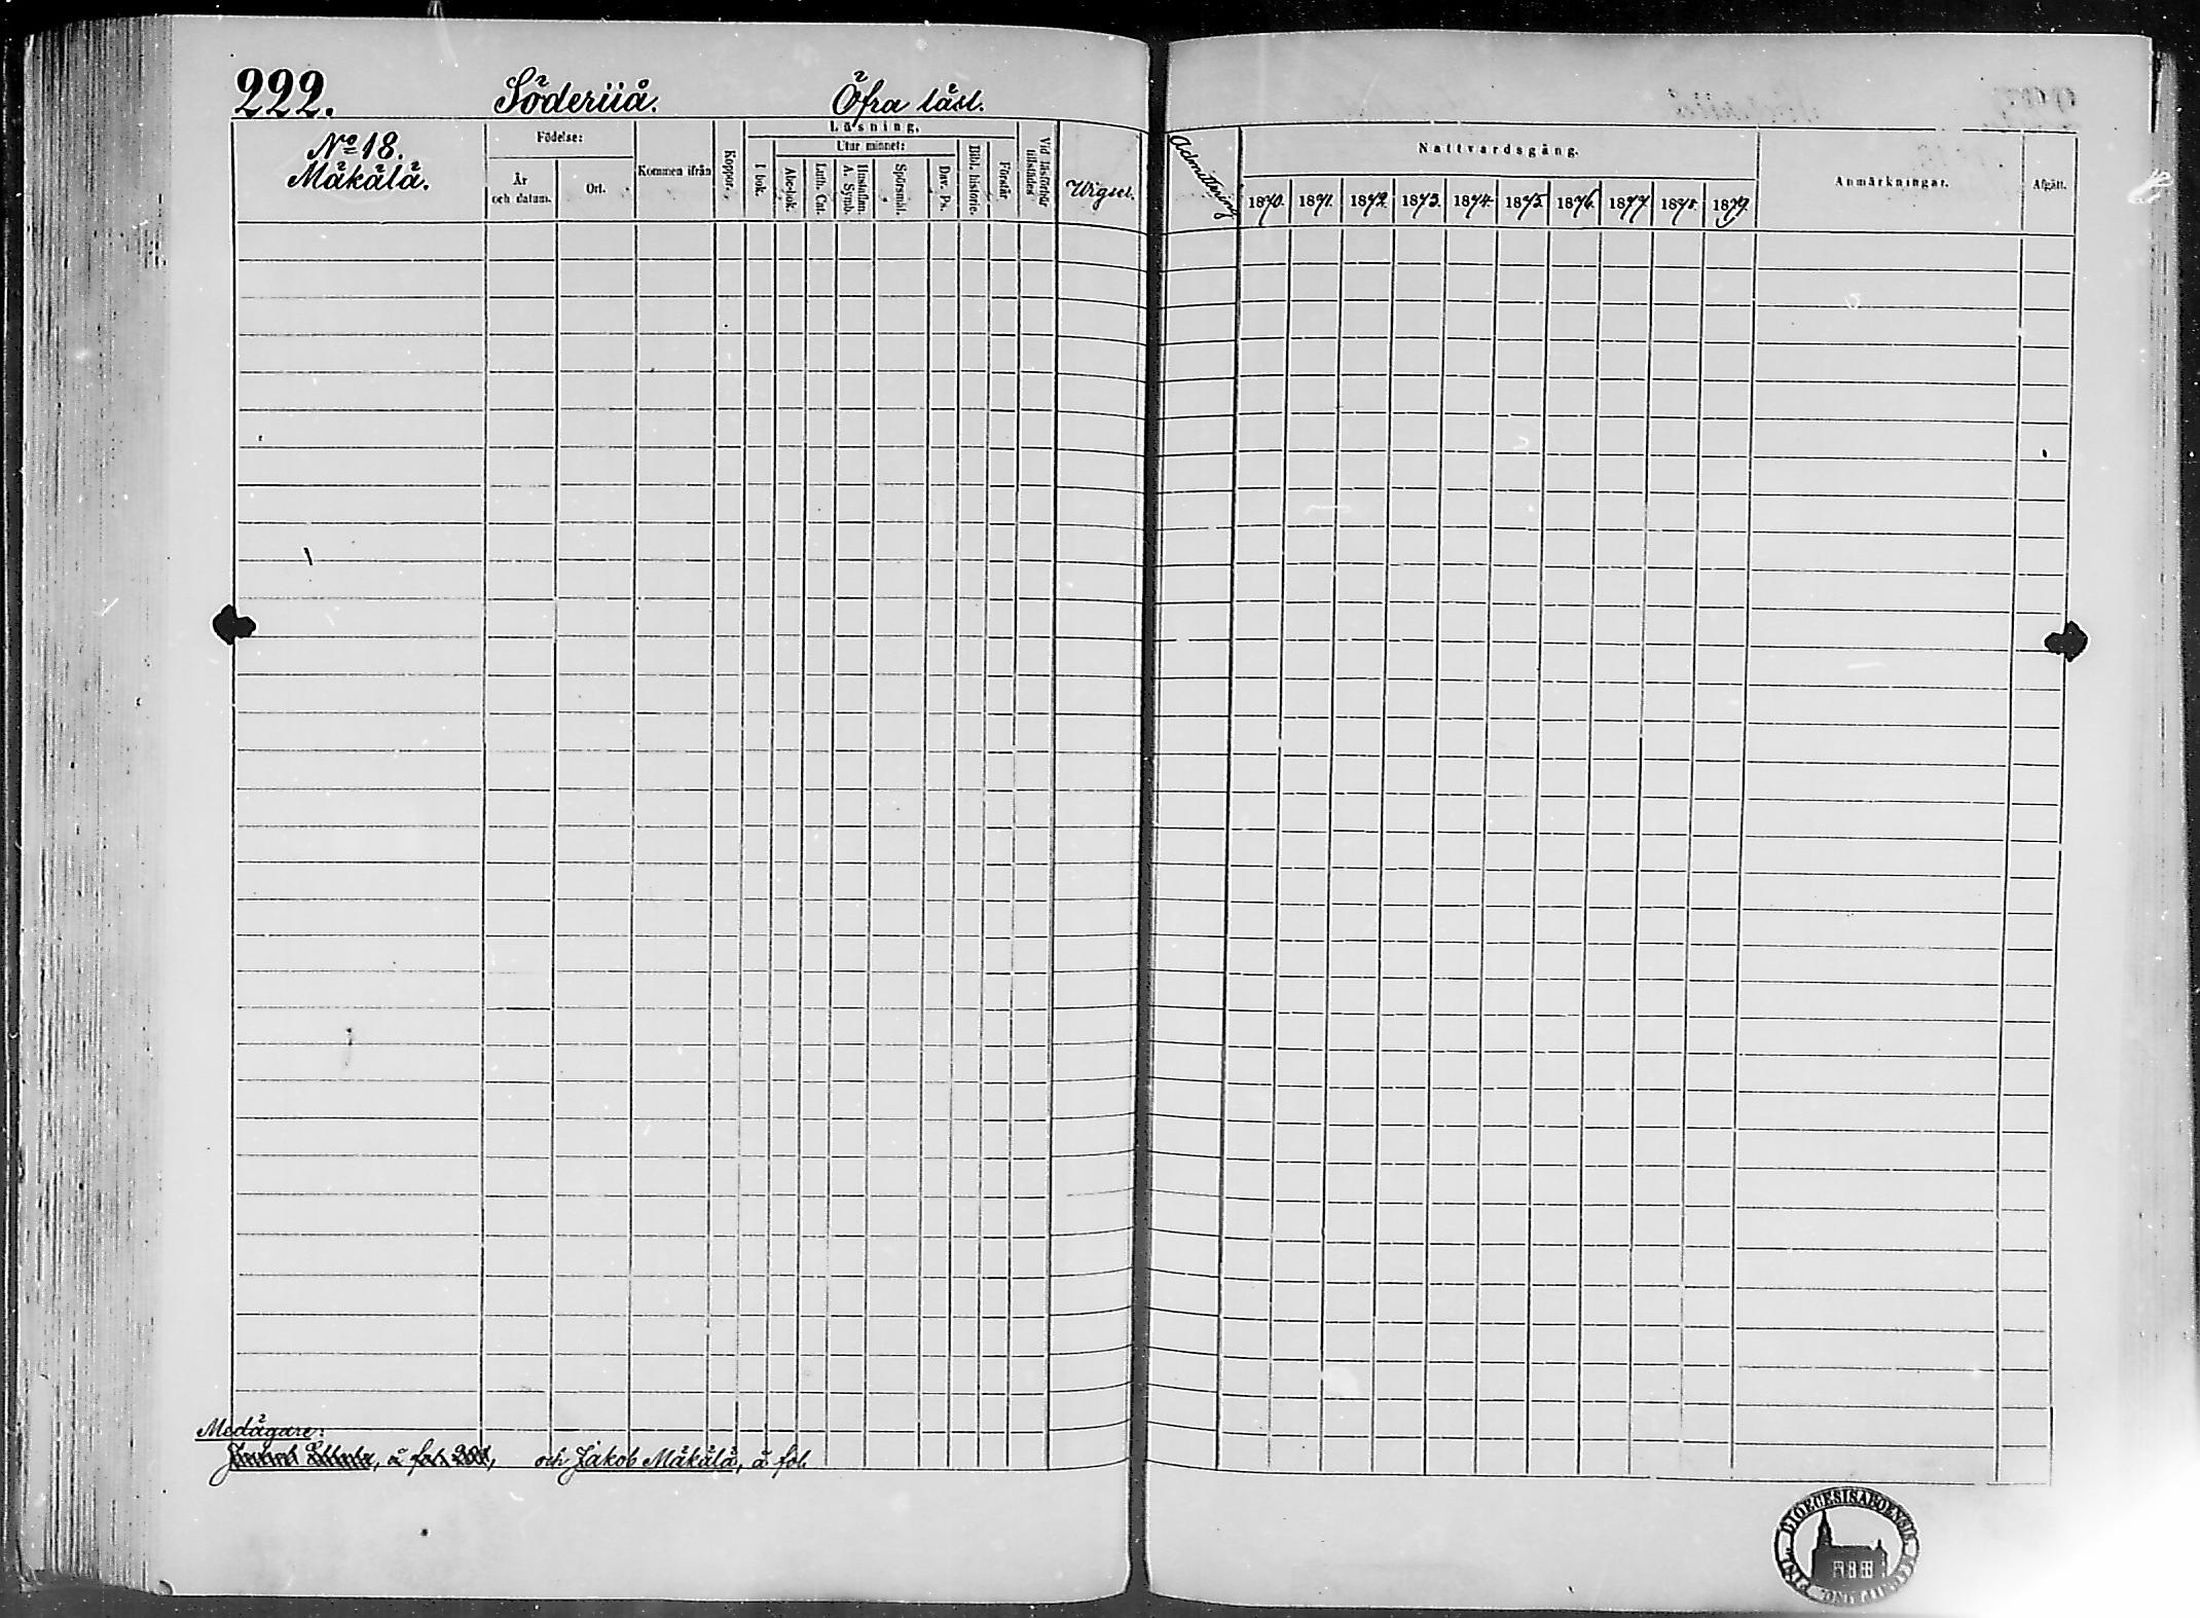 222. Söderiiå. Öfra läsl.
No 18.
Mäkälä.
Födelse:
År
och datum.
Ort.
Kommen ifrån
Koppor.
Läsning.
I bok.
Utur minnet:
Abc-bok.
Luth. Cat.
Hustaflan.
A. Symb.
Spörsmål.
Dav. Ps.
Bibl. historie.
Förstår
Vid läsförhör
tillstädes
Wigsel.
Admittering
Nattvardsgång.
1870. 1871. 1872. 1873. 1874. 1875. 1876. 1877. 1878. 1879.
Anmärkningar.
Afgått.
Medägare:
å fol. och Jakob Mäkälä, å fol.
DIOECESIS ABOENSIS